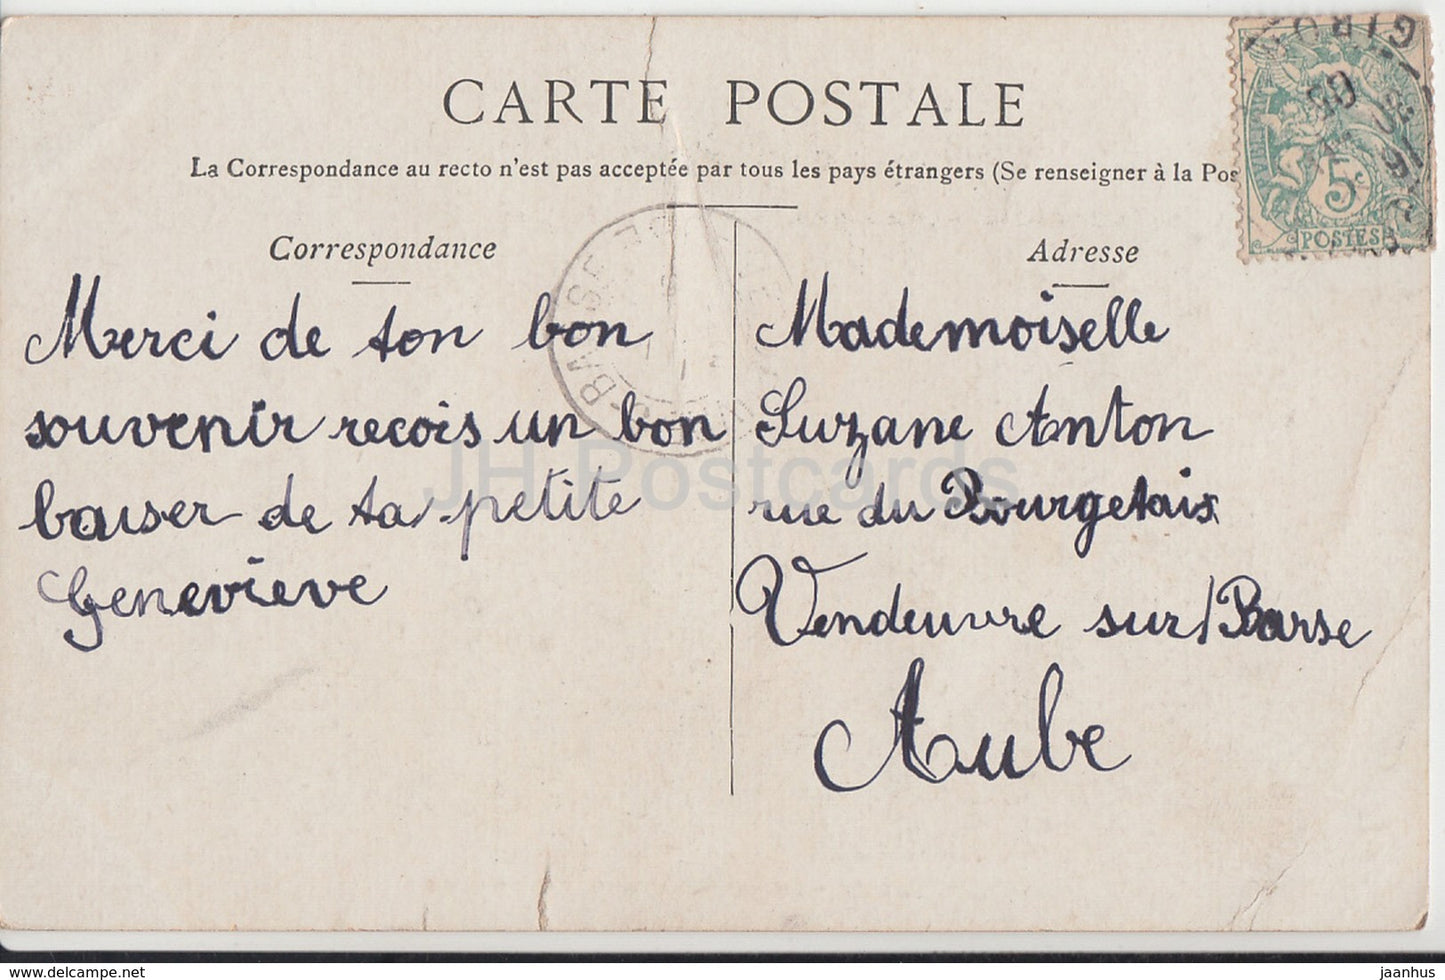 CARTE POSTALE
La Correspondance au recto n'est pas acceptée par tous les pays étrangers (Se renseigner à la Pos
Correspondance
Merci de ton bon
souvenir recois un bon
baiser de ta petite
Genevieve
Adresse
Mademoiselle
Suzane Anton
rue du Bourgetais
Vendeuvre sur/Barse
Aube
5c
POSTES
GIRO
JH Postcards
delcampe.net
jaanhus